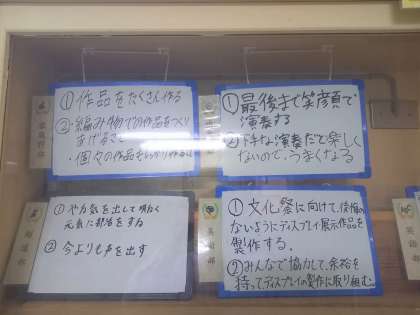 ①作品をたくさん作る
②編み物での作品をつくり
あげること
・個々の作品をしっかり作る
①最後まで笑顔で
演奏する
②下手な演奏だて楽しく
ないので、うまくなる
①やる気を出して明るく
元気に部活をする
②今よりも声を出す
①文化祭に向けて、後悔の
ないようにディスプレイ展示作品を
製作する。
②みんなで協力して、余裕を
持ってディスプレイの製作に取り組む。
英語部